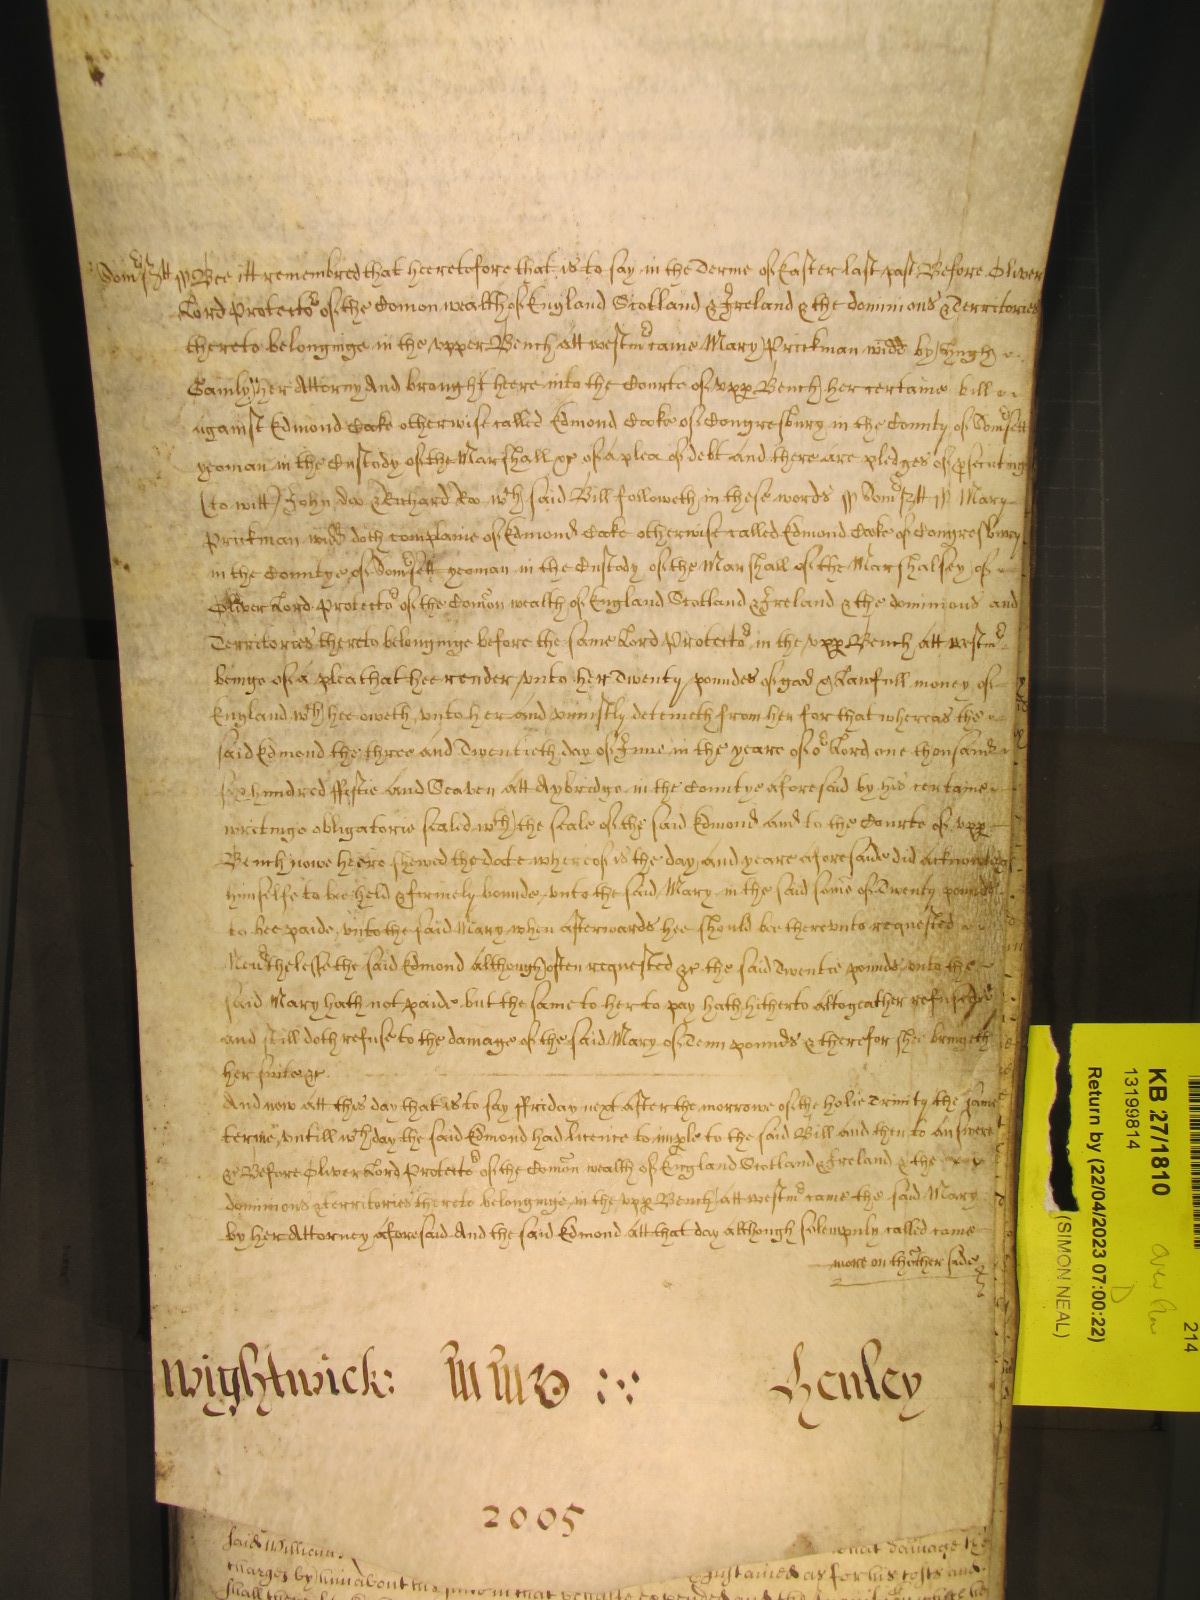 Somsett ss Bee itt remembred that heeretofore that is to say in the Terme of Easter last past Before Oliver
Lord Protector of the Comon wealth of England Scotland & Ireland & the dominions & Territories
thereto belonginge in the upper Bench att westmr came Mary Prickman widd by Hugh
her Attorny And brought heere into the Courte of upp Bench her certaine bill
against Edmond Cooke otherwise called Edmond Cooke of Congresbury in the County of Somsett
yeoman in the Custody of the Marshall &c of a plea of debt and there are pledges of psecuting
(to witt) John doo & Richard Roo wch said Bill followeth in these words ss Somsett ss Mary
Prickman widd doth complaine of Edmond Cooke otherwise called Edmond Cooke of Congresbury
in the Countye of Somsett yeoman in the Custody of the Marshall of the Marshalsey of
Oliver Lord Protector of the Comon wealth of England Scotland & Ireland & the dominions and
Territories thereto belonginge before the same Lord Protector in the upp Bench att westmr
beinge of a plea that hee render unto her Twenty poundes of good & Lawfull money of
England wch hee oweth unto her and uniustly deteineth from her for that whereas the
said Edmond the three and Twentieth day of June in the yeare of or Lord one thousand
six hundred fiftie And Seaven Att Axbridge in the Countye aforesaid by his certaine
writinge obligatorie sealed wth the seale of the said Edmond And to the Courte of upp
Bench nowe heere shewed the date whereof is the day and yeare aforesaide did Acknowledge
himselfe to bee held & firmely bounde unto the said Mary in the said some of Twenty pounds
to bee paide unto the said Mary when afterwards hee should bee thereunto requested
Nevrthelesse the said Edmond Although often requested &c the said Twentie pounds unto the
said Mary hath not paide but the same to her to pay hath hitherto altogeather refused
and still doth refuse to the damage of the said Mary of Tenn pounds & therefor shee bringeth
her suite &c.
And now att this day that is to say ffriday next After the morrowe of the holie Trinity the same
terme untill wch day the said Edmond had licence to imple to the said Bill and then to answere
&c Before Oliver Lord Protector of the Comon wealth of England Scotland & Ireland & the
dominions & territories thereto belonginge in the upp Bench att westmr came the said Mary
by her Attorney aforesaid And the said Edmond Att that day although solempnly called came
more on thother side
Wightwick: Henley
2005
said William that damage the
charges by him about his suite in that sustained as for his costs and
KB 27/1810
13199814
Return by (22/04/2023 07:00:22)
(SIMON NEAL)
214